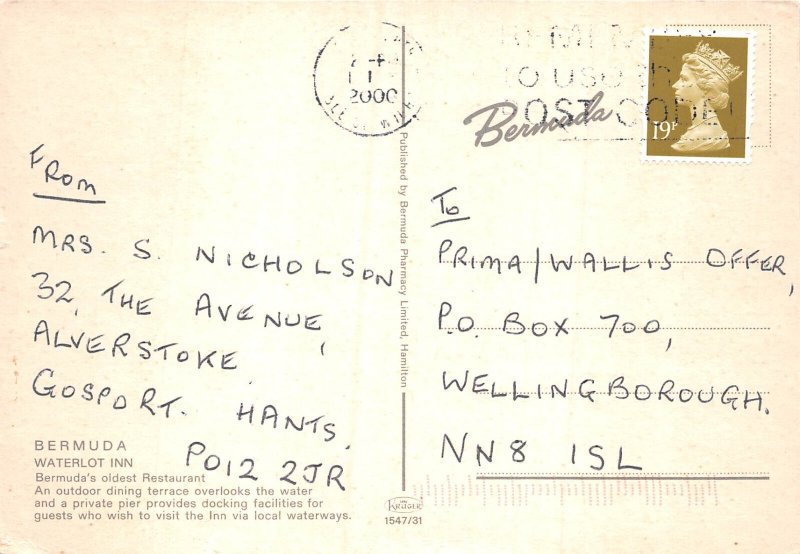 From
MRS. S. NICHOLSON
32, THE AVENUE,
ALVERSTOKE,
GOSPORT. HANTS.
PO12 2JR
BERMUDA
WATERLOT INN
Bermuda's oldest Restaurant
An outdoor dining terrace overlooks the water
and a private pier provides docking facilities for
guests who wish to visit the Inn via local waterways.
2000
Published by Bermuda Pharmacy Limited, Hamilton
KRUGER
1547/31
TO USE
POST CODE
Bermuda
19P
To
PRIMA/WALLIS OFFER,
P.O. BOX 700,
WELLINGBOROUGH.
NN8 1SL